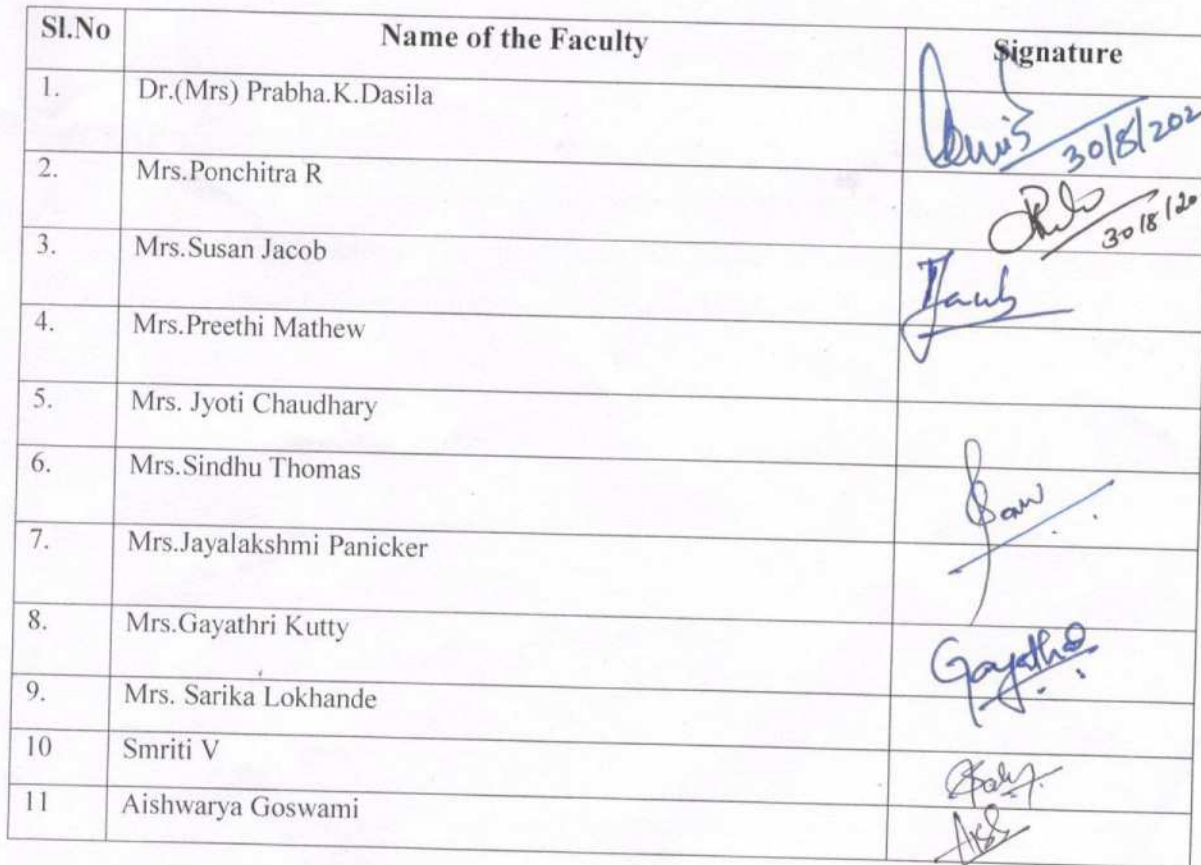 Sl.No Name of the Faculty Signature
1. Dr.(Mrs) Prabha.K.Dasila
30/8/202
2. Mrs.Ponchitra R
30/8/20
3. Mrs.Susan Jacob Jacob
4. Mrs.Preethi Mathew
5. Mrs. Jyoti Chaudhary
6. Mrs.Sindhu Thomas
7. Mrs.Jayalakshmi Panicker
8. Mrs.Gayathri Kutty Gayathri
9. Mrs. Sarika Lokhande
10 Smriti V
11 Aishwarya Goswami